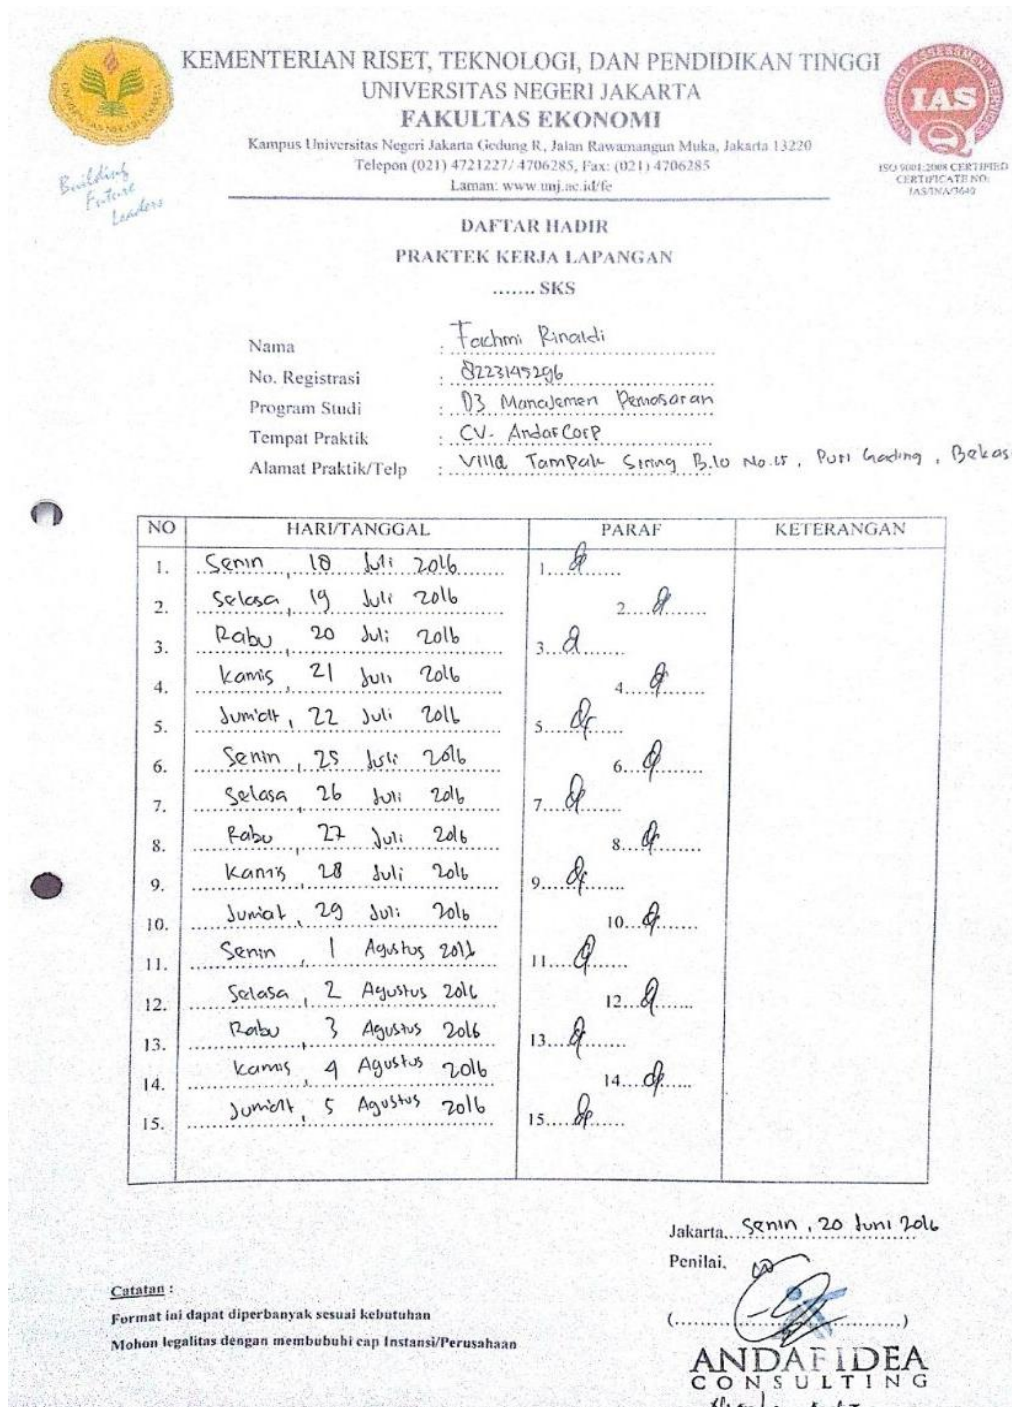 KEMENTERIAN RISET, TEKNOLOGI, DAN PENDIDIKAN TINGGI
UNIVERSITAS NEGERI JAKARTA
FAKULTAS EKONOMI
Kampus Universitas Negeri Jakarta Gedung R, Jalan Rawamangun Muka, Jakarta 13220
Telepon (021) 4721227/ 4706285, Fax: (021) 4706285
Laman: www.unj.ac.id/fe
Building
Future
Leaders
IAS
ISO 9001:2008 CERTIFIED
CERTIFICATE NO:
DAFTAR HADIR
PRAKTEK KERJA LAPANGAN
....... SKS
Nama : Fachmi Rinaldi
No. Registrasi : 8223145296
Program Studi : D3 Manajemen Pemasaran
Tempat Praktik : CV. Andaf Corp
Alamat Praktik/Telp : Villa Tampak Siring B.10 No.15, Puri Gading, Bekas
NO HARI/TANGGAL PARAF KETERANGAN
1. Senin, 18 Juli 2016 1.
2. Selasa, 19 Juli 2016 2.
3. Rabu, 20 Juli 2016 3.
4. Kamis, 21 Juli 2016 4.
5. Jum'at, 22 Juli 2016 5.
6. Senin, 25 Juli 2016 6.
7. Selasa, 26 Juli 2016 7.
8. Rabu, 27 Juli 2016 8.
9. Kamis, 28 Juli 2016 9.
10. Jumiat, 29 Juli 2016 10.
11. Senin, 1 Agustus 2016 11.
12. Selasa, 2 Agustus 2016 12.
13. Rabu, 3 Agustus 2016 13.
14. Kamis, 4 Agustus 2016 14.
15. Jumiat, 5 Agustus 2016 15.
Jakarta, Senin, 20 Juni 2016
Penilai,
Catatan :
Format ini dapat diperbanyak sesuai kebutuhan
Mohon legalitas dengan membubuhi cap Instansi/Perusahaan
(....................)
ANDAFIDEA
CONSULTING